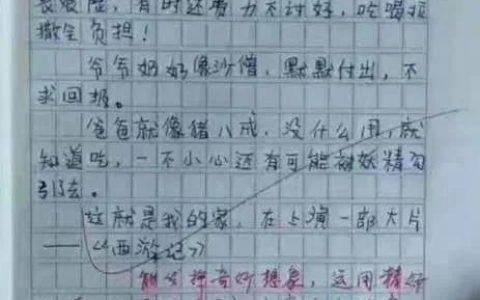 长艰险，有时还费力不讨好，吃喝拉
撒全负担！
爷爷奶奶像沙僧，默默付出，不
求回报。
爸爸就像猪八戒，没什么用，就
知道吃，一不小心还有可能被妖精勾
引去。
这就是我的家，在上演一部大片
——《西游记》
能发挥奇妙想象，运用精